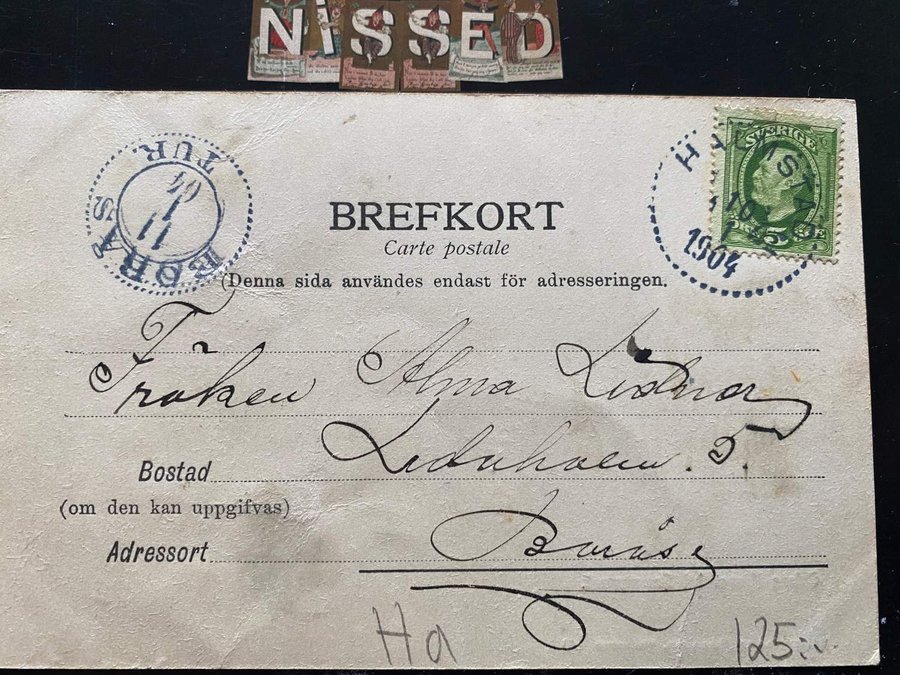 NiSSED
BORÅS
TUR.
11
1
04
SVERIGE
10
5
1904
BREFKORT
Carte postale
(Denna sida användes endast för adresseringen.
Fröken Alma Lidner
5.
Bostad
(om den kan uppgifvas)
Adressort
Borås
Ha
125:-